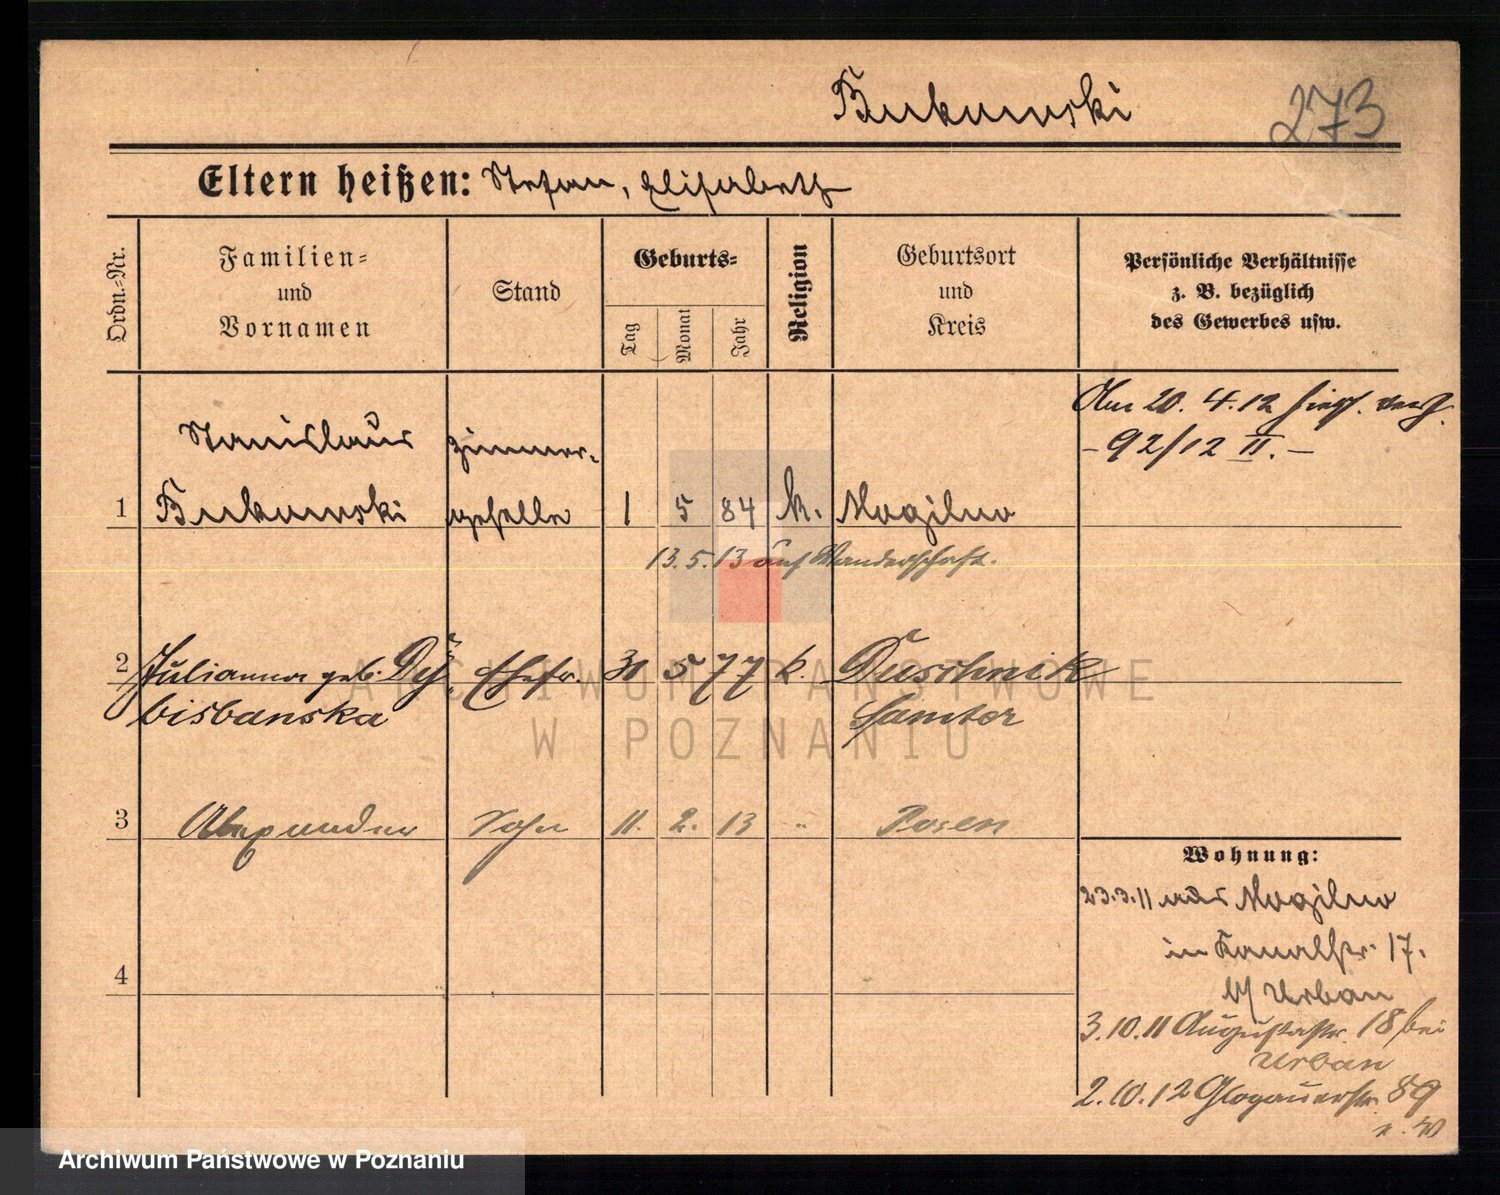 Bukowski
273
Eltern heißen: Stefan, Elisabeth
Ordn.-Nr.
Familien-
und
Vornamen
Stand
Geburts-
Tag
Monat
Jahr
Religion
Geburtsort
und
Kreis
Persönliche Verhältnisse
z. B. bezüglich
des Gewerbes usw.
Am 20. 4. 12 hies. verh.
- 92/12 II. -
Stanislaus Zimmer-
1 Bukowski geselle 1 5 84 k. Mogilno
13.5.13 auf Wanderschaft.
2 Julianna geb. Ehefr. 30 5 77 k. Duschnik
bisbanska Samter
3 Alexander Sohn 11. 2. 13 " Posen
4
Wohnung:
23.3.11 aus Mogilno
in Kanalstr. 17.
b/ Urban
3.10.11 Augustastr. 18 bei
Urban
2.10.12 Glogauerstr. 89
ARCHIWUM PAŃSTWOWE
W POZNANIU
Archiwum Państwowe w Poznaniu